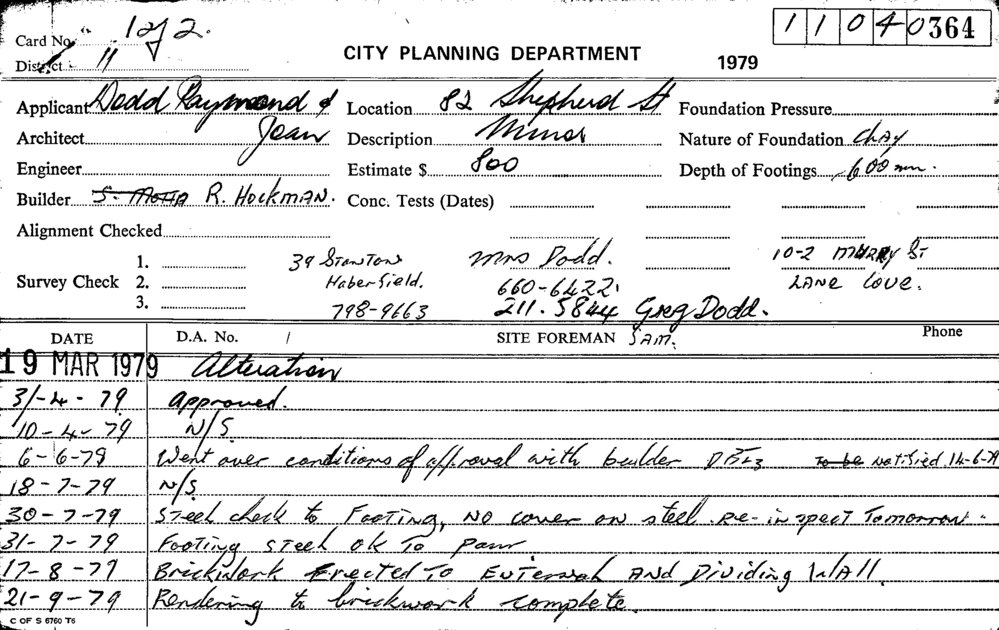 Card No. 1 of 2. 1 1 0 4 0364
District 11 CITY PLANNING DEPARTMENT 1979
Applicant Dodd Raymond & Location 82 Shepherd St Foundation Pressure
Architect Jean Description Minor Nature of Foundation Clay
Engineer Estimate $ 800 Depth of Footings 600 mm.
Builder R. Hockman. Conc. Tests (Dates)
Alignment Checked
1. 39 Stanton Mrs Dodd. 10-2 St
Survey Check 2. Haberfield. 660-6422. Lane Cove.
3. 798-9663 211.5844 Greg Dodd.
DATE D.A. No. / SITE FOREMAN SAM. Phone
19 MAR 1979 Alteration
3/-4-79 Approved.
10-4-79 N/S.
6-6-79 Went over conditions of approval with builder to be notified 14-6-79
18-7-79 N/S.
30-7-79 Steel check to Footing, NO cover on steel. Re-inspect Tomorrow.
31-7-79 Footing steel OK To pour
17-8-79 Brickwork Erected To External AND Dividing WAll.
21-9-79 Rendering to brickwork complete.
C OF S 6760 T6